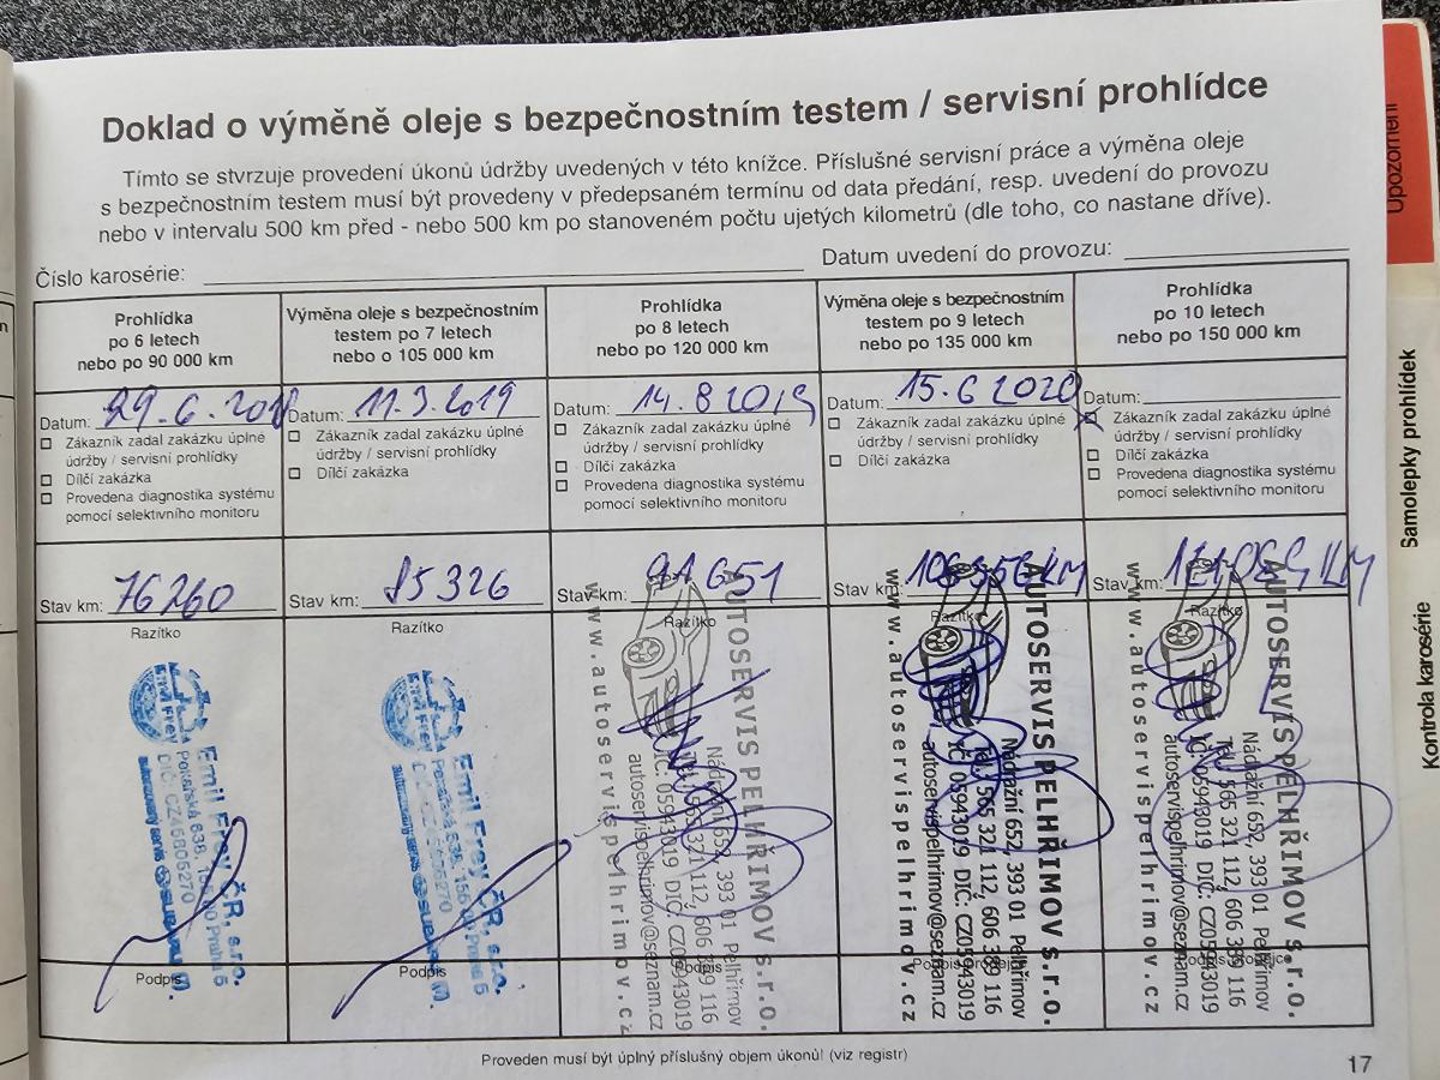 Doklad o výměně oleje s bezpečnostním testem / servisní prohlídce
Tímto se stvrzuje provedení úkonů údržby uvedených v této knížce. Příslušné servisní práce a výměna oleje
s bezpečnostním testem musí být provedeny v předepsaném termínu od data předání, resp. uvedení do provozu
nebo v intervalu 500 km před - nebo 500 km po stanoveném počtu ujetých kilometrů (dle toho, co nastane dříve).
Číslo karosérie:
Datum uvedení do provozu:
Prohlídka
po 6 letech
nebo po 90 000 km
Datum: 29.6.2018
Zákazník zadal zakázku úplné
údržby / servisní prohlídky
Dílčí zakázka
Provedena diagnostika systému
pomocí selektivního monitoru
Stav km: 76260
Razítko
Emil Frey ČR, s.r.o.
Pekařská 638, 155 00 Praha 5
DIČ: CZ45806270
autorizovaný servis SUBARU
Podpis
Výměna oleje s bezpečnostním
testem po 7 letech
nebo o 105 000 km
Datum: 11.3.2019
Zákazník zadal zakázku úplné
údržby / servisní prohlídky
Dílčí zakázka
Stav km: 85326
Razítko
Emil Frey ČR, s.r.o.
Pekařská 638, 155 00 Praha 5
autorizovaný servis SUBARU
Podpis
Prohlídka
po 8 letech
nebo po 120 000 km
Datum: 14.8 2019
Zákazník zadal zakázku úplné
údržby / servisní prohlídky
Dílčí zakázka
Provedena diagnostika systému
pomocí selektivního monitoru
Stav km: 91651
Razítko
AUTOSERVIS PELHŘIMOV s.r.o.
Nádražní 652, 393 01 Pelhřimov
Tel.: 565 321 112, 606 389 116
IČ: 05943019 DIČ: CZ05943019
autoservispelhrimov@seznam.cz
www.autoservispelhrimov.cz
Podpis
Výměna oleje s bezpečnostním
testem po 9 letech
nebo po 135 000 km
Datum: 15.6 2020
Zákazník zadal zakázku úplné
údržby / servisní prohlídky
Dílčí zakázka
Stav km:
Razítko
AUTOSERVIS PELHŘIMOV s.r.o.
Nádražní 652, 393 01 Pelhřimov
Tel.: 565 321 112, 606 389 116
IČ: 05943019 DIČ: CZ05943019
autoservispelhrimov@seznam.cz
www.autoservispelhrimov.cz
Prohlídka
po 10 letech
nebo po 150 000 km
Datum:
Zákazník zadal zakázku úplné
údržby / servisní prohlídky
Dílčí zakázka
Provedena diagnostika systému
pomocí selektivního monitoru
Stav km:
Razítko
AUTOSERVIS PELHŘIMOV s.r.o.
Nádražní 652, 393 01 Pelhřimov
Tel.: 565 321 112, 606 389 116
IČ: 05943019 DIČ: CZ05943019
autoservispelhrimov@seznam.cz
www.autoservispelhrimov.cz
Proveden musí být úplný příslušný objem úkonů! (viz registr)
17
Upozornění
Samolepky prohlídek
Kontrola karosérie